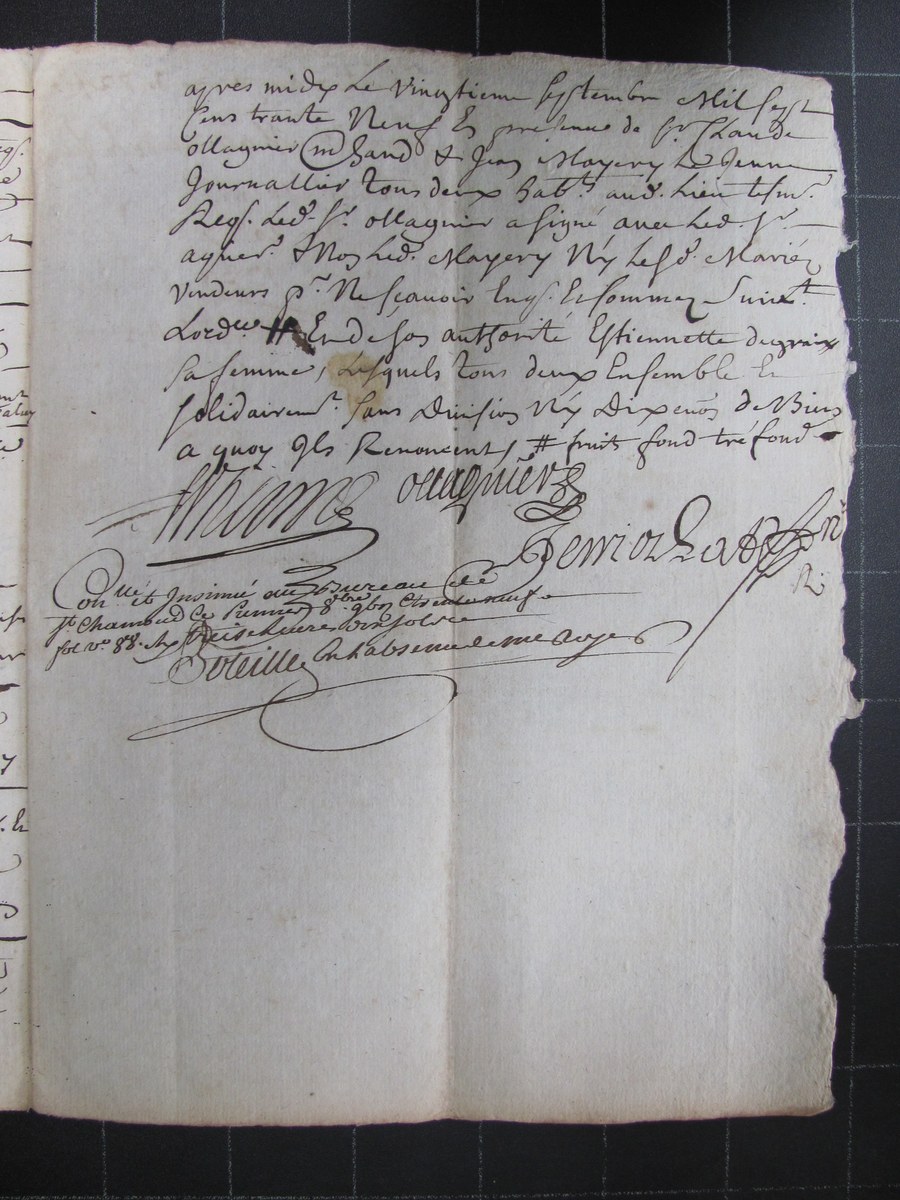 apres midy Le vingtieme septembre Mil sept
Cens trante Neuf En presence de Sr. Claude
ollagnier mchand & Jean Mayery Le Jeune
Journallier tous deux habts. aud. Lieu tesms.
Reqs. Led. Sr. ollagnier a signé avec Led. Sr.
aquer. & Non Led. Mayery Ny Lesd. Mariéz
vendeurs pr. Ne sçavoir Enqs. Et sommez Suivt.
Lordce # Et de son authorité Estiennette
sa femme, Lesquels tous deux Ensemble Et
solidairemt. sans Division Ny De Biens
a quoy Ils Renoncent, # fruit fond tréfond
ollagnier
Nre
R.
Conlle et Insinué au Bureau de
St. Chamond Ce Premier 8.bre et trente neuf
fol vo. 88. treise heures
Boteille En Labsence de me Royer